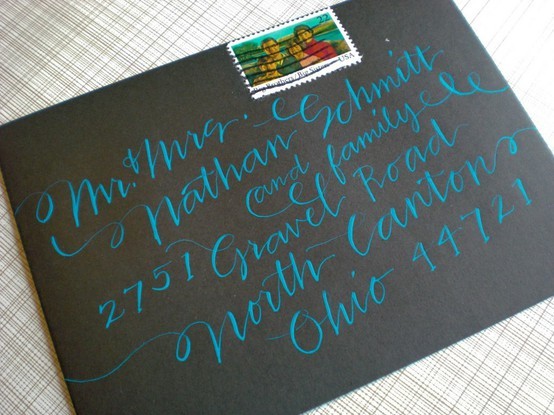 22
USA
Mr. & Mrs.
Nathan Schmitt
and family
2751 Gravel Road
North Canton
Ohio 44721